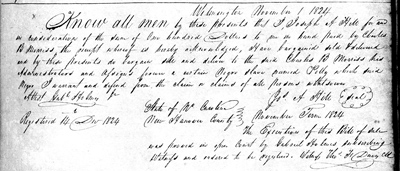 Wilmington November 1, 1824
Know all men by these presents that I Joseph A. Hill for and
in consideration of the sum of One hundred Dollars to me in hand paid by Charles
B Morriss, the receipt whereof is hereby acknowledged, Have bargained sold & delivered
and by these presents do bargain sell and deliver to the said Charles B Morriss his
Administrators and Assigns forever a certain Negro slave named Polly which said
Negro I warrant and defend from the claim or claims of all persons whatsoever
Attest Gabl. Holmes Jr. Jos. A. Hill Seal
State of No. Carolina
Registered 14 Decr 1824 New Hanover County November Term 1824
The Execution of this Bill of Sale
was proved in open Court by Gabriel Holmes subscribing
Witness and ordered to be registered. Thos. F. Davis Clk